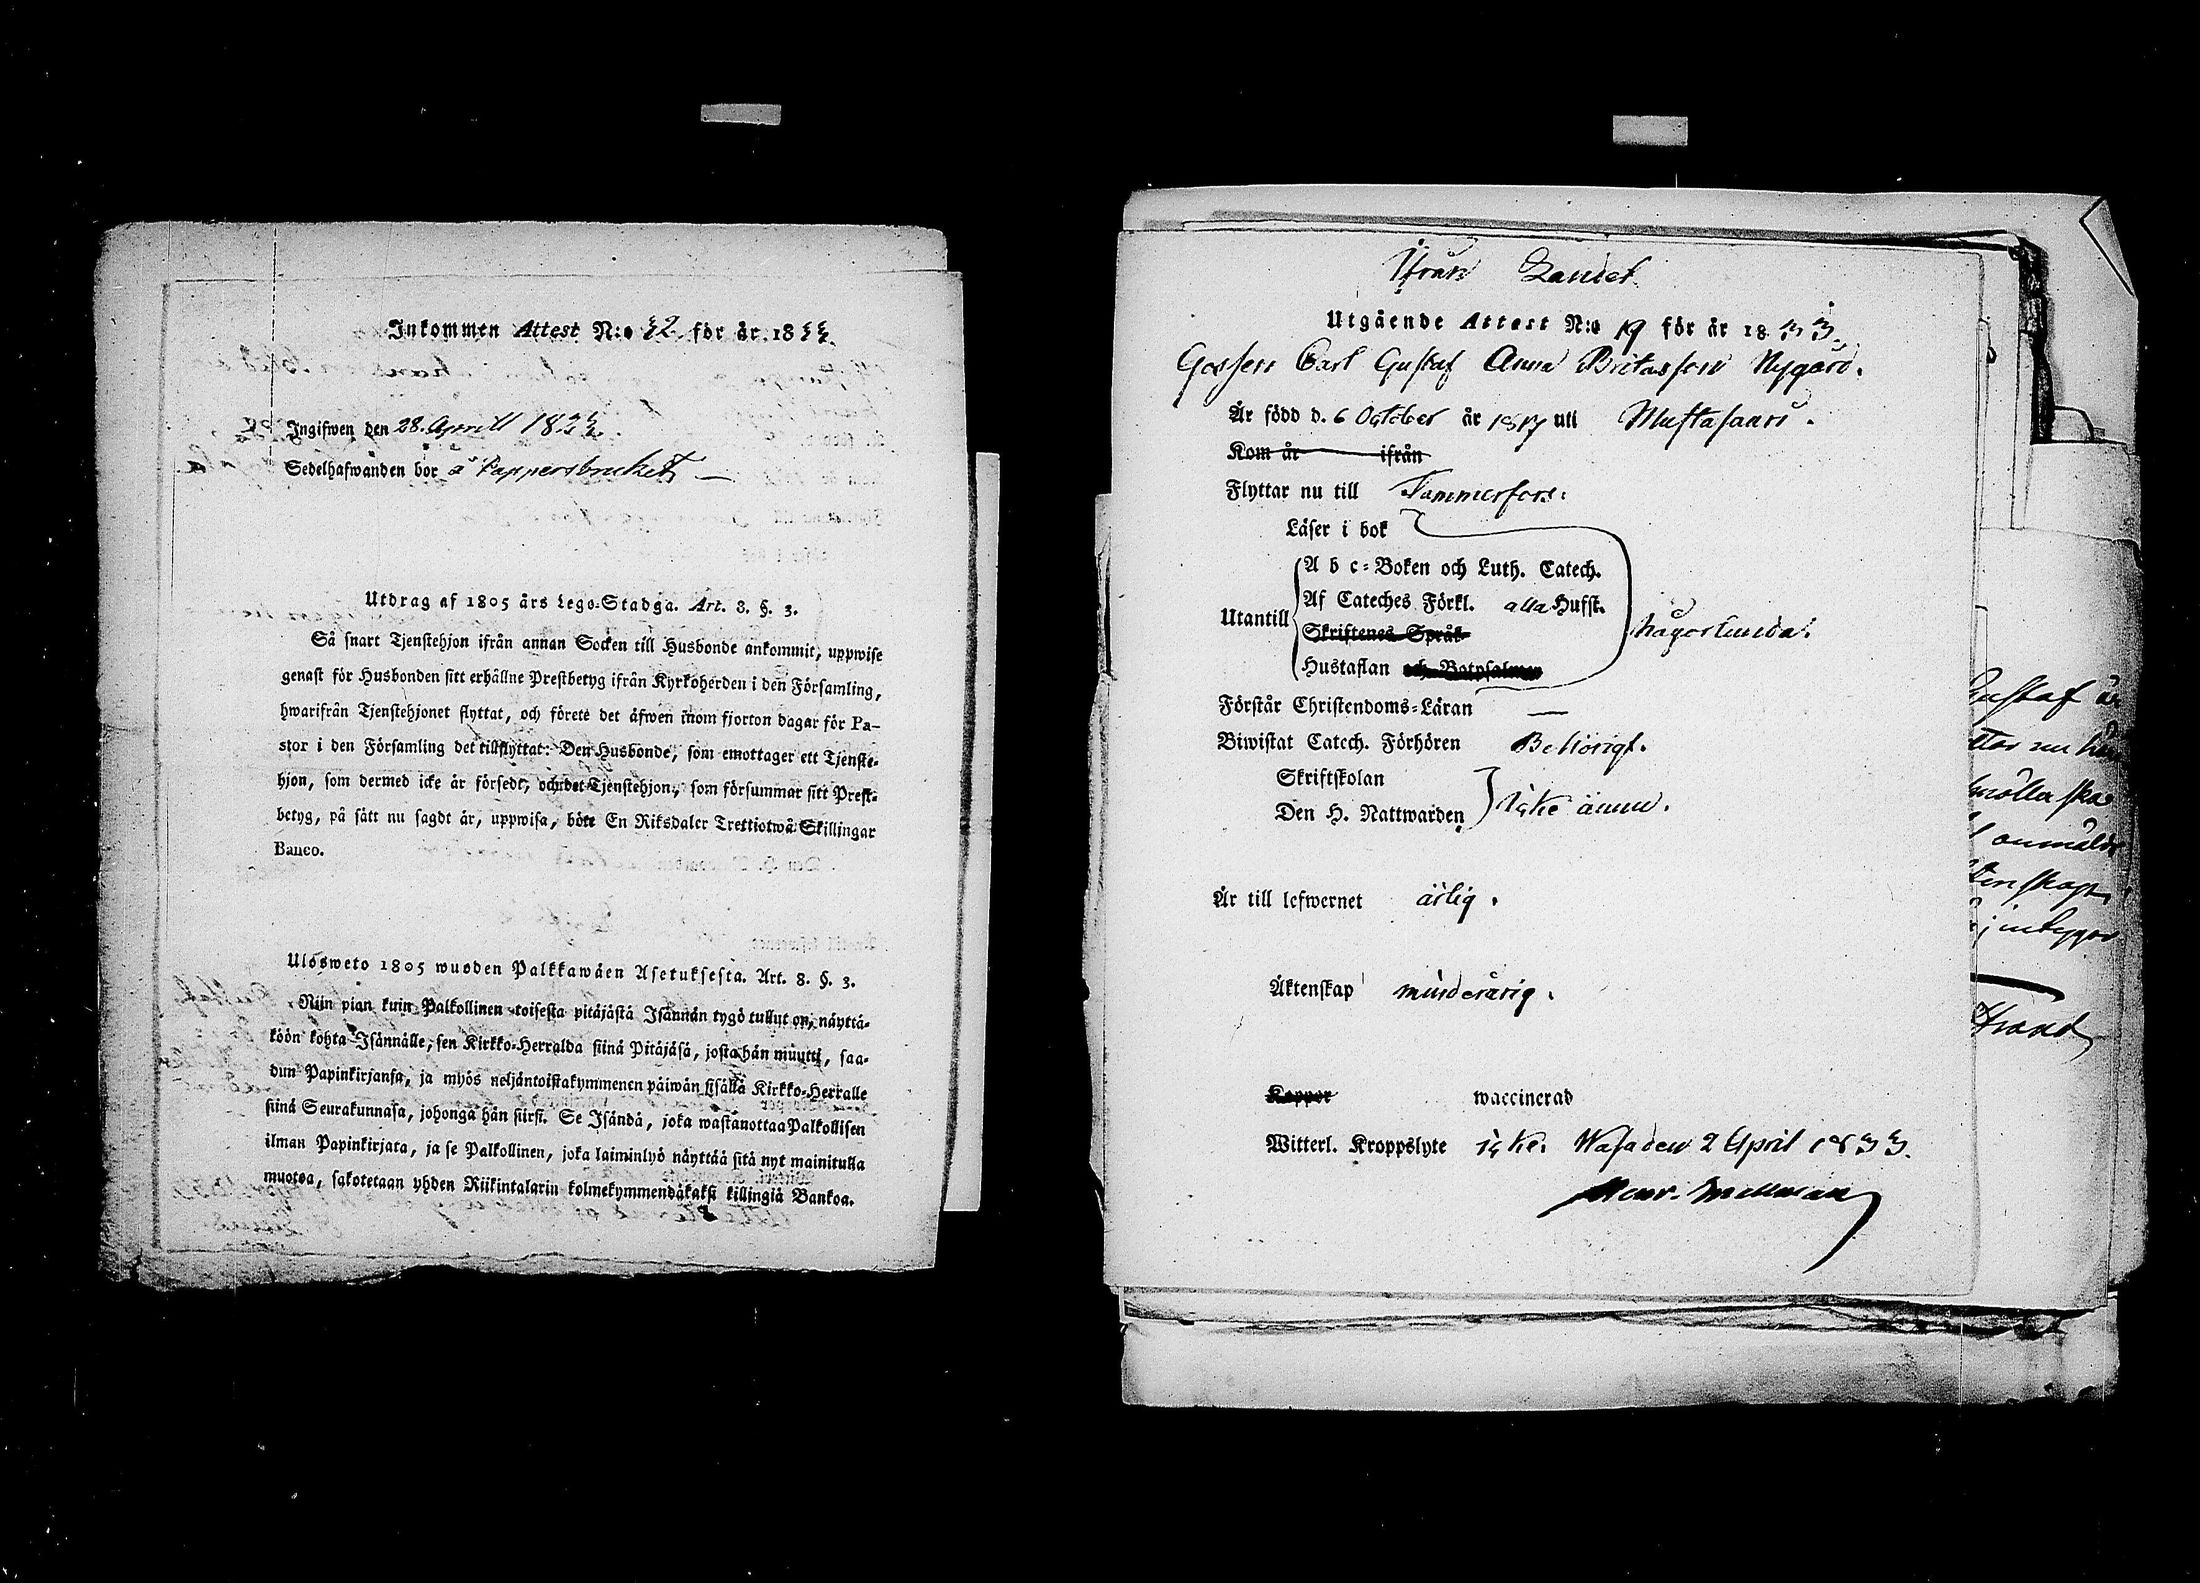 Inkommen Attest N:o 32 för år 1833.
Ingifwen den 28. Aprill 1833.
Sedelhafwanden bor å Pappersbruket
Utdrag af 1805 års Lego-Stadga. Art. 8. §. 3.
Så snart Tjenstehjon ifrån annan Socken till Husbonde ankommit, uppwise
genast för Husbonden sitt erhållne Prestbetyg ifrån Kyrkoherden i den Församling,
hwarifrån Tjenstehjonet flyttat, och förete det äfwen inom fjorton dagar för Pa-
stor i den Församling det tillflyttat: Den Husbonde, som emottager ett Tjenste-
hjon, som dermed icke är försedt, och det Tjenstehjon, som försummar sitt Prest-
betyg, på sätt nu sagdt är, uppwisa, böte En Riksdaler Trettiotwå Skillingar
Banco.
Ulosweto 1805 wuoden Palkkawäen Asetuksesta. Art. 8. §. 3.
Niin pian kuin Palkollinen toisesta pitäjästä Isännän tygö tullut on, näyttä-
köön kohta Isännälle, sen Kirkko-Herralda siinä Pitäjäsä, josta hän muutti, saa-
dun Papinkirjansa, ja myös neljäntoistakymmenen päiwän sisällä Kirkko-Herralle
siinä Seurakunnasa, johonga hän siirsi. Se Isändä, joka wastanottaa Palkollisen
ilman Papinkirjata, ja se Palkollinen, joka laiminlyö näyttää sitä nyt mainitulla
muotoa, sakotetaan yhden Riikintalarin kolmekymmendäkaksi killingiä Bankoa.
Ifrån Landet
Utgående Attest N:o 19 för år 1833.
Gossen Carl Gustaf Anna Britasson Nygård.
Är född d. 6 October år 1817 uti Mustasaari.
Kom år ifrån
Flyttar nu till Tammerfors.
Läser i bok
A b c-Boken och Luth. Catech.
Af Cateches Förkl. alla Hufst.
Utantill
Skriftenes Språk
någorlunda.
Hustaflan och Botpsalmen
Förstår Christendoms-Läran —
Biwistat Catech. Förhören Behörigt.
Skriftskolan
Den H. Nattwarden icke ännu.
Är till lefwernet ärlig.
Äktenskap minderårig.
Koppor waccinerad
Witterl. Kroppslyte icke. Wasa den 2 April 1833.
Henr. Mellman
Gustaf är
anmäld
Strand